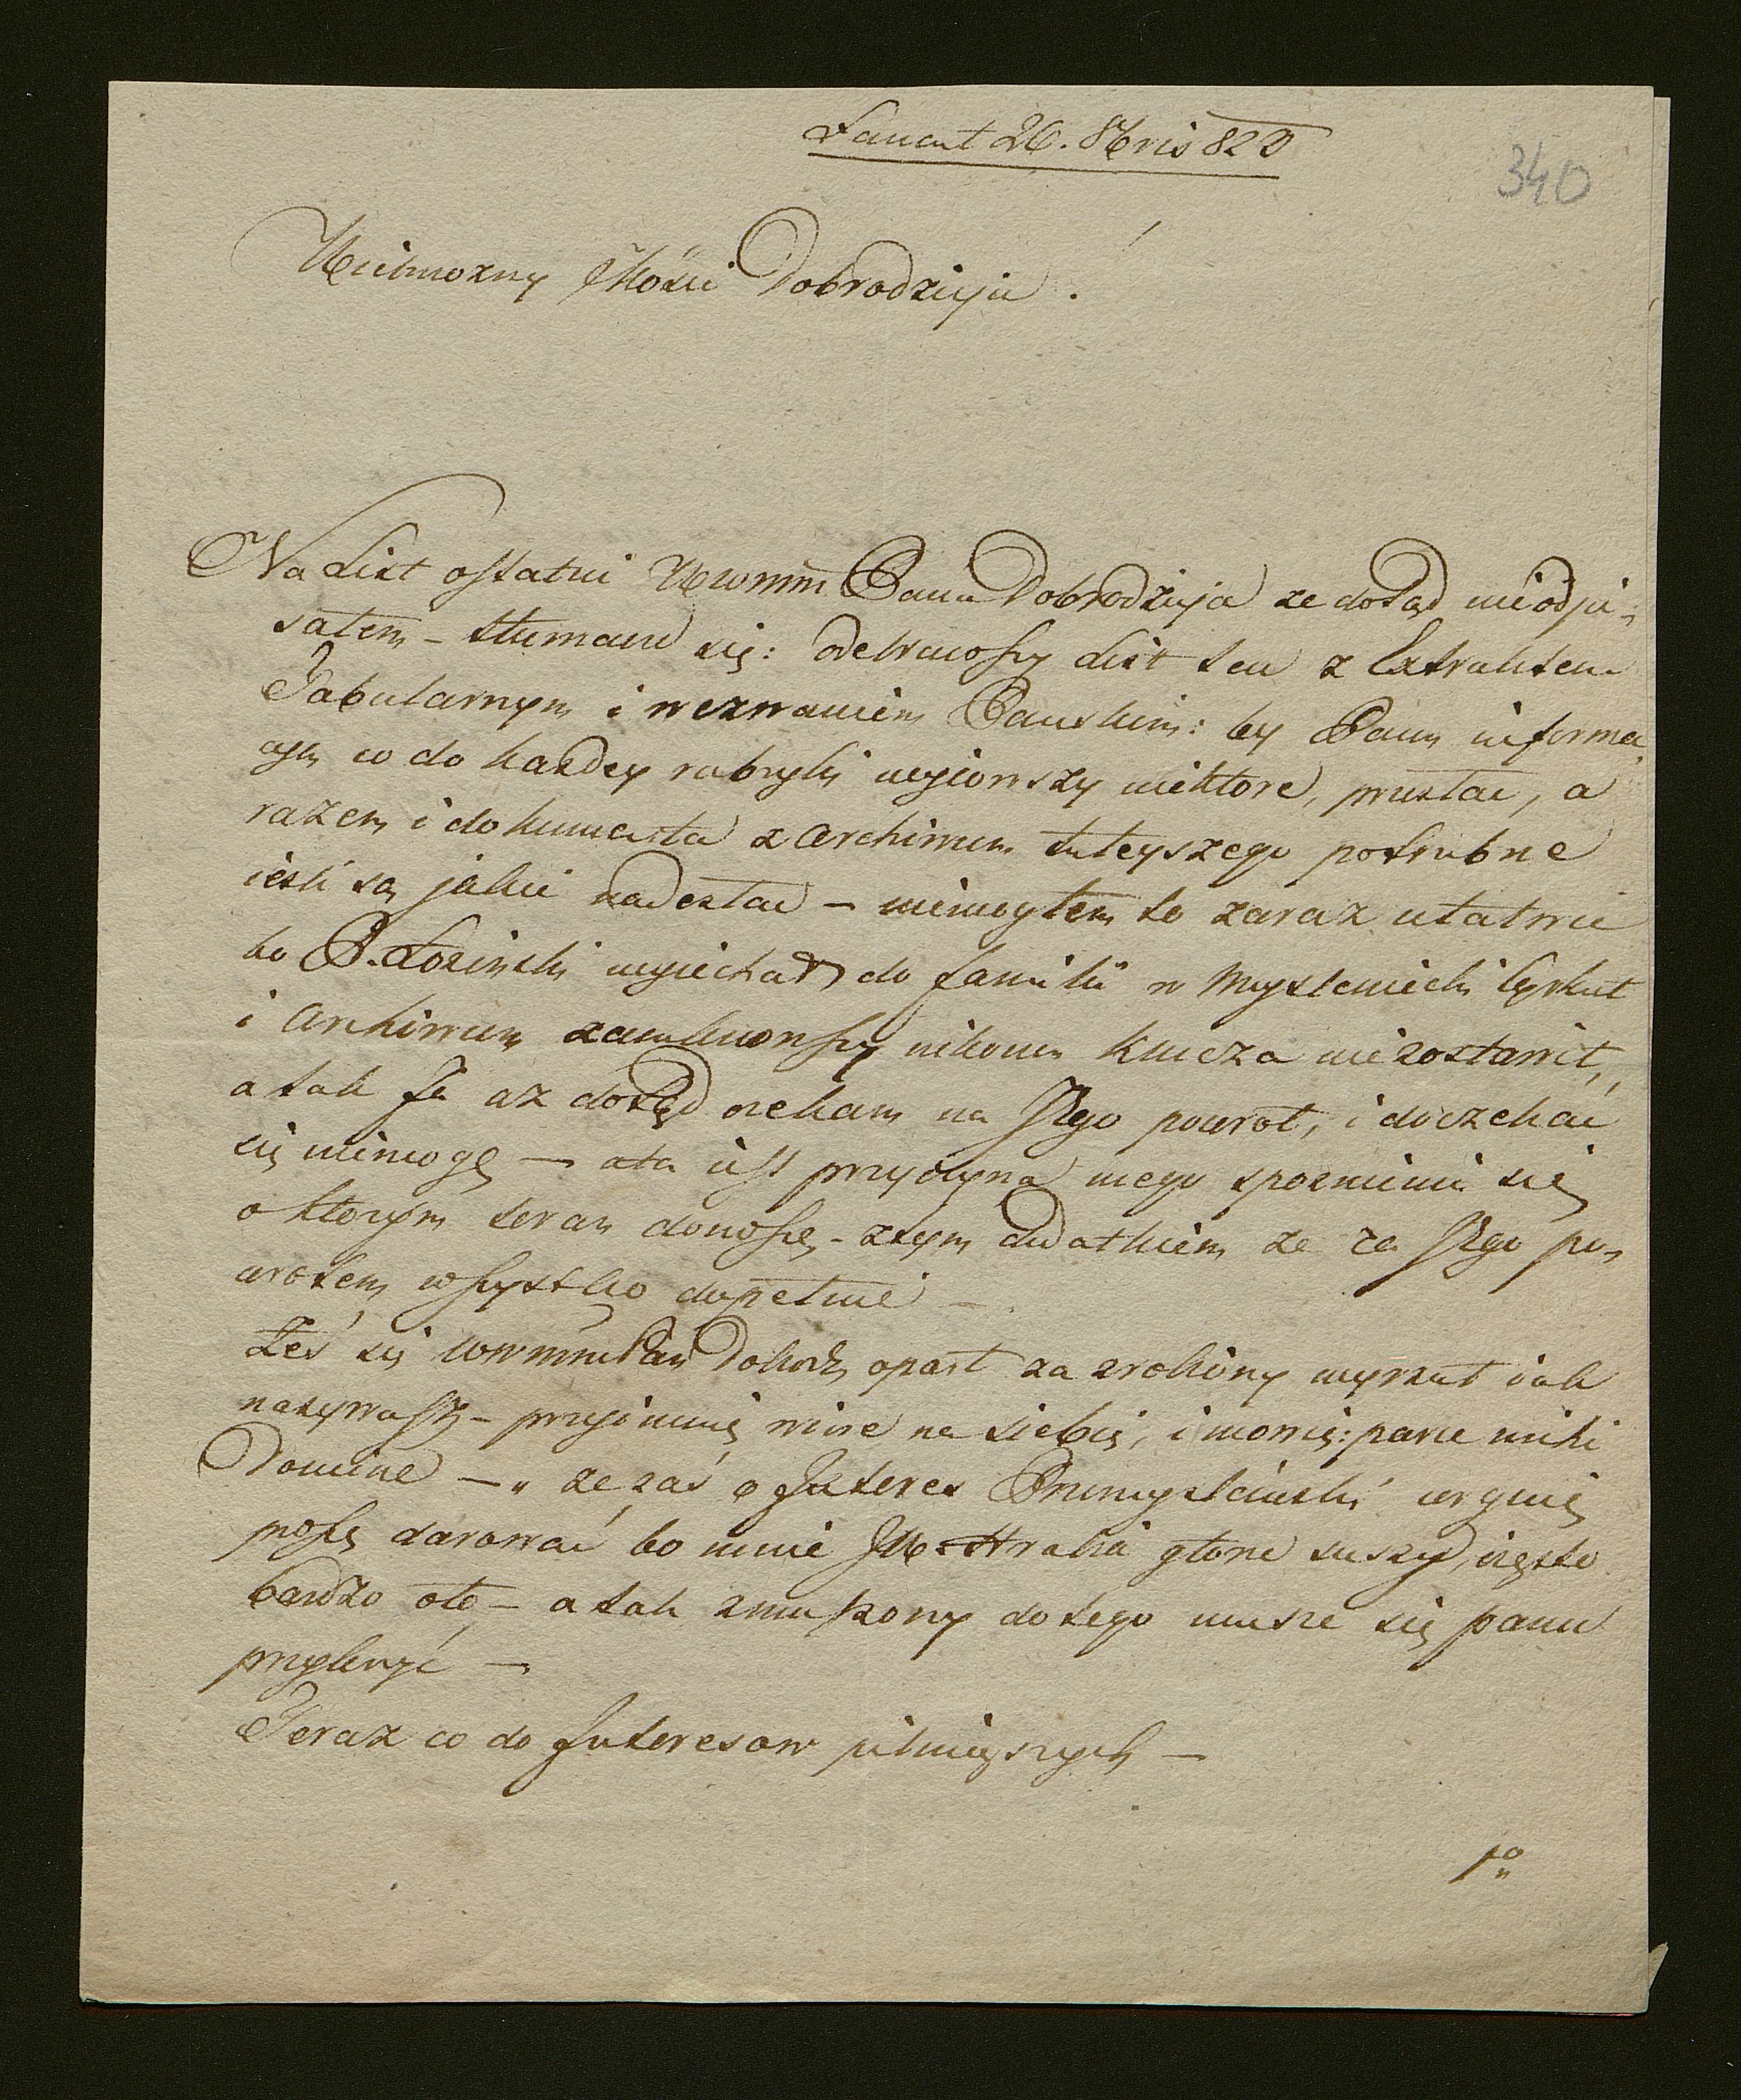 Łancut 26. 8bris 823
340
Wielmozny Mości Dobrodzieju.
Na List ostatni WWmm Pana Dobrodzieja ze dotąd nieodpi-
sałem – tłumacze się: odebrawszy List ten z Extraktem
Tabularnym i wezwaniem Panskim: by Panu informa
cyę co do kazdey rubryki wyiowszy niektore, przesłac, a
razem i dokumenta z Archiwum tuteyszego potrzebne
iesli są jakie nadesłac – niemogłem to zaraz ułatwic
bo P. Łozinski wyiechał do familii w Myslenicki Cyrkuł
i Archiwum zamknowszy nikomu klucza niezostawił,
a tak Ja az dotąd czekam na Jego powrot, i doczekać
się niemogę – a ta iest przyczyna mego spoznienia się
o ktorym teraz donoszę – z tym dodatkiem ze za Jego po-
wrotem wszystko dopełnie –
Ześ się WWmm Pan Dobrodz oparł za zrobiony wyrzut iak
nazywasz – przyimuię wine na siebie, i mowię: parce mihi
Domine – " ze zaś o Interes Przemyslanski urguię
proszę darowac bo mnie JW. Hrabia głowe suszy, często
bardzo oto – a tak zmuszony do tego musze się panu
przykrzyć –
Teraz co do Interesow pilnieyszych –
1o